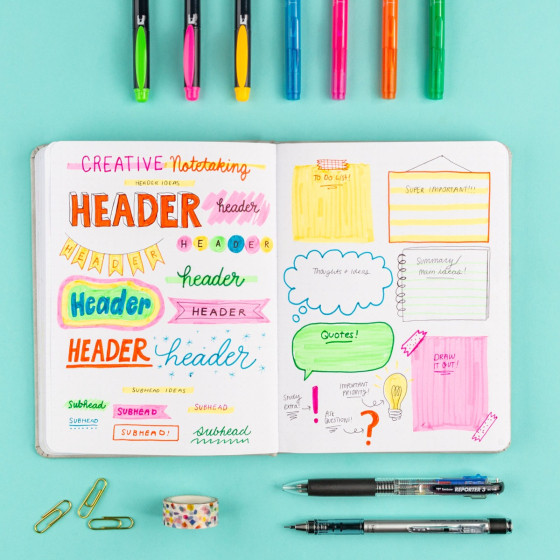 CREATIVE Notetaking
HEADER IDEAS
HEADER
header
HEADER
HEADER
header
Header
HEADER
HEADER
header
SUBHEAD IDEAS
Subhead
SUBHEAD
SUBHEAD
SUBHEAD
SUBHEAD
Subhead
TO DO LIST!
SUPER IMPORTANT!!!
Thoughts + ideas
Summary/
main ideas!
Quotes!
DRAW
IT OUT!
Study
extra!
!
ASK
QUESTION!
?
IMPORTANT
PRIORITY!
REPORTER 3